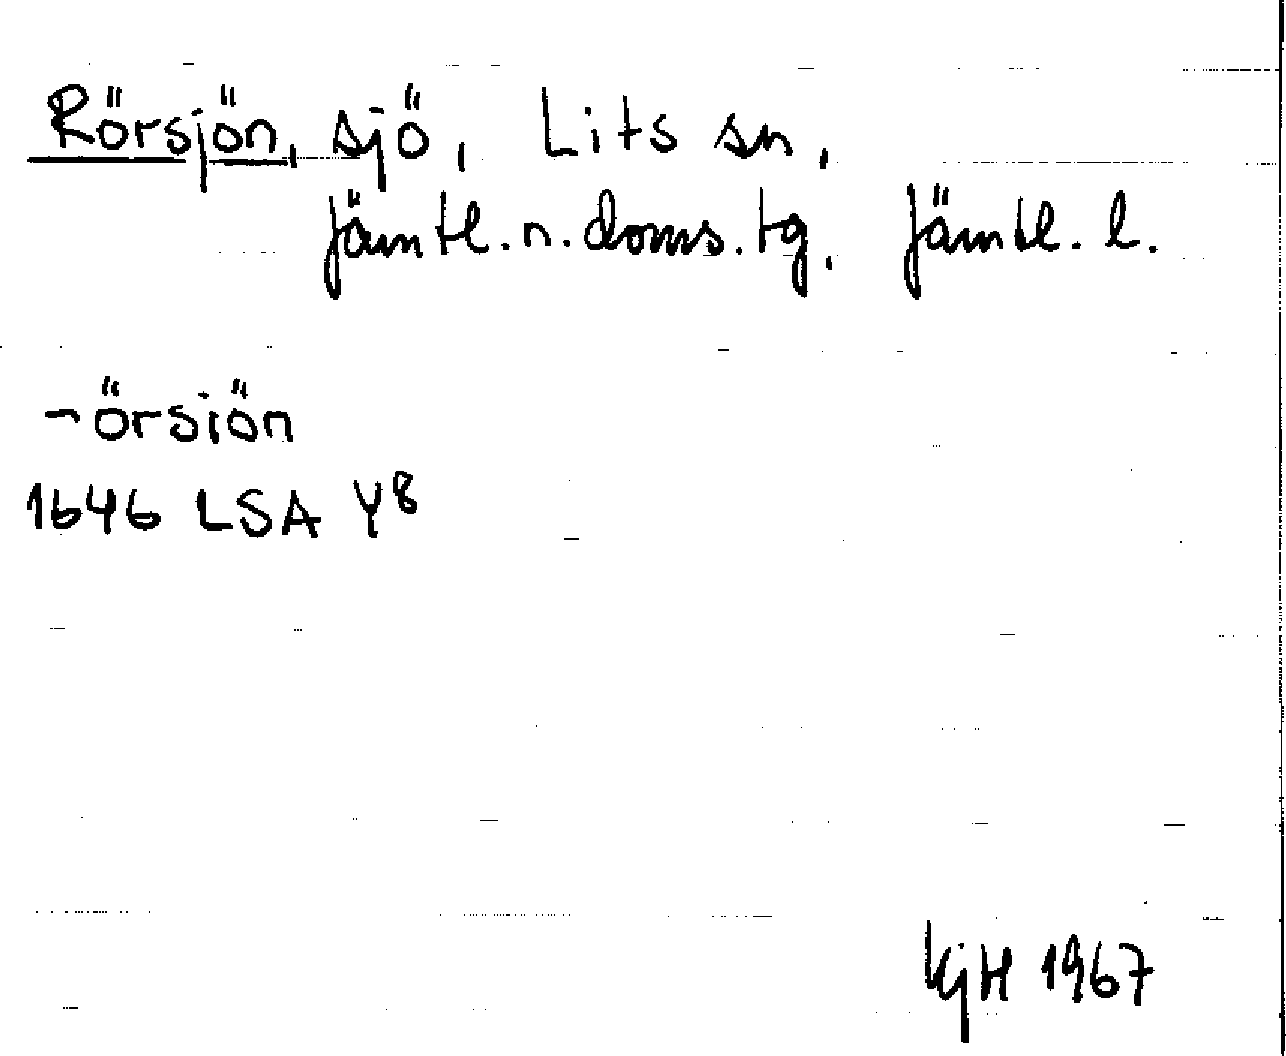 Rörsjön, sjö, Lits sn,
Jämtl.n.doms.tg, Jämtl. l.
-örsiön
1646 LSA Y8
KjH 1967